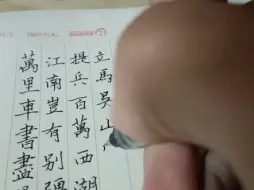 萬里車書盡
江南豈有别
提兵百萬西湖
立馬吳山